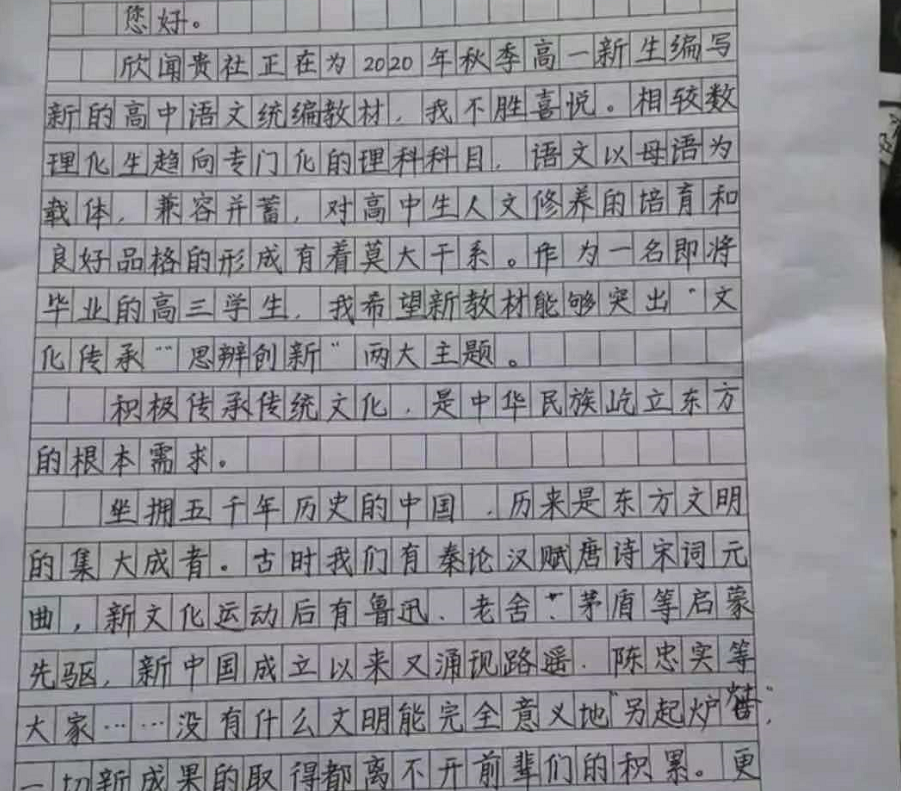 您好。
欣闻贵社正在为2020年秋季高一新生编写
新的高中语文统编教材，我不胜喜悦。相较数
理化生趋向专门化的理科科目，语文以母语为
载体，兼容并蓄，对高中生人文修养的培育和
良好品格的形成有着莫大干系。作为一名即将
毕业的高三学生，我希望新教材能够突出“文
化传承”“思辨创新”两大主题。
积极传承传统文化，是中华民族屹立东方
的根本需求。
坐拥五千年历史的中国，历来是东方文明
的集大成者。古时我们有秦论汉赋唐诗宋词元
曲，新文化运动后有鲁迅、老舍、茅盾等启蒙
先驱，新中国成立以来又涌现路遥、陈忠实等
大家……没有什么文明能完全意义地“另起炉灶”，
一切新成果的取得都离不开前辈们的积累。更